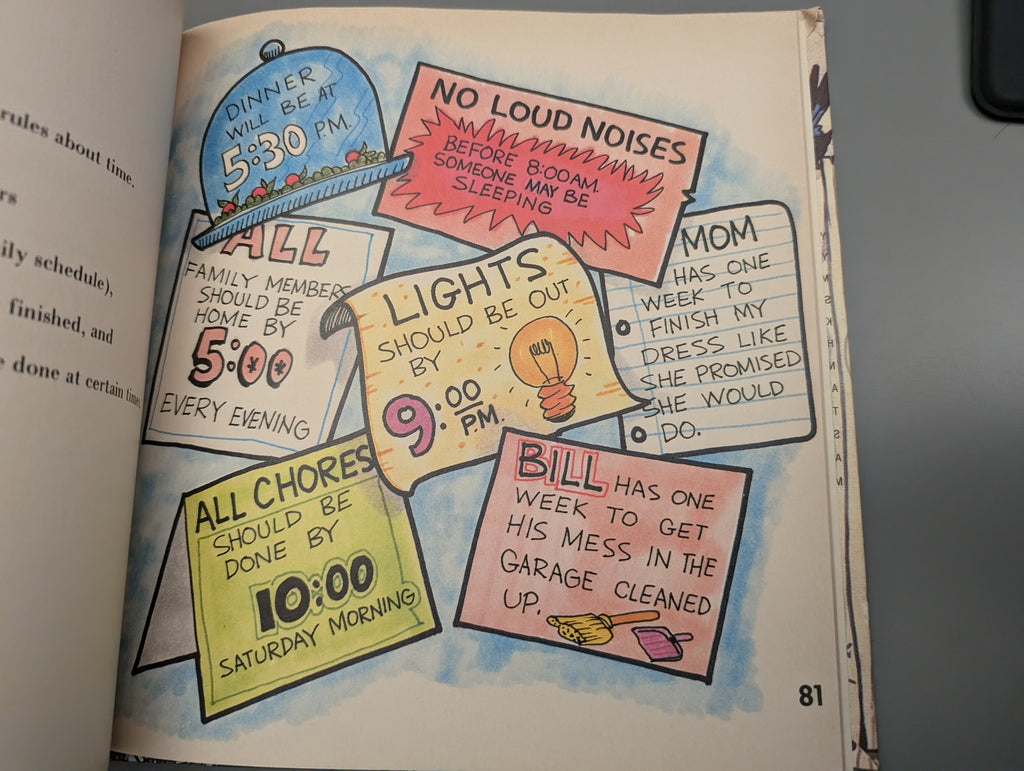 rules about time.
rs
ily schedule),
finished, and
e done at certain times
DINNER
WILL BE AT
5:30 P.M.
NO LOUD NOISES
BEFORE 8:00 A.M.
SOMEONE MAY BE
SLEEPING
ALL
FAMILY MEMBERS
SHOULD BE
HOME BY
5:00
EVERY EVENING
LIGHTS
SHOULD BE OUT
BY
9:00
P.M.
MOM
HAS ONE
WEEK TO
FINISH MY
DRESS LIKE
SHE PROMISED
SHE WOULD
DO.
ALL CHORES
SHOULD BE
DONE BY
10:00
SATURDAY MORNING
BILL HAS ONE
WEEK TO GET
HIS MESS IN THE
GARAGE CLEANED
UP.
81